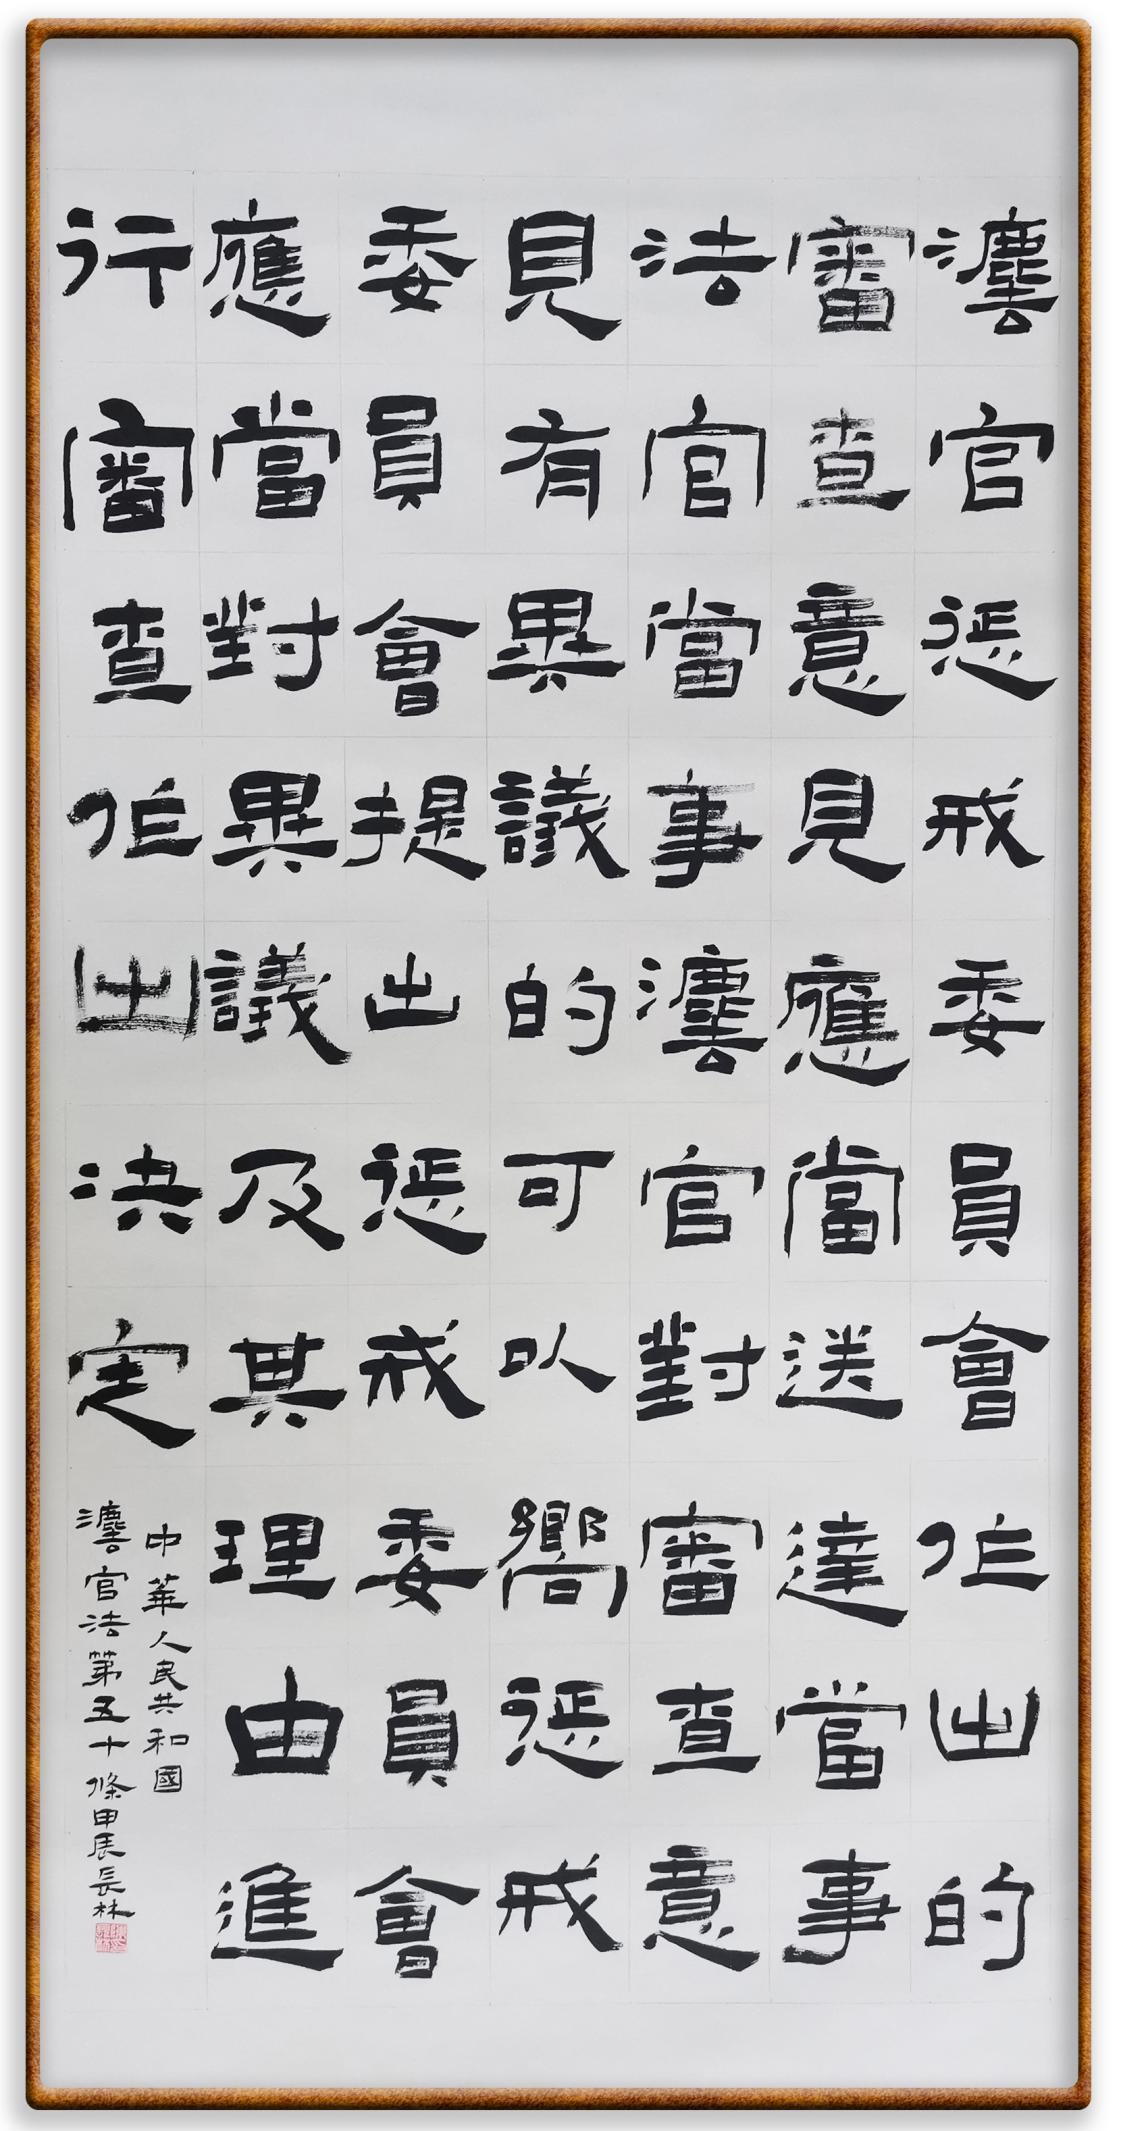 灋官惩戒委員會作出的
審查意見應當送達當事
法官當事灋官對審查意
見有異議的可以嚮惩戒
委員會提出惩戒委員會
應當對異議及其理由進
行審查作出决定
中華人民共和國
灋官法第五十條甲辰長林